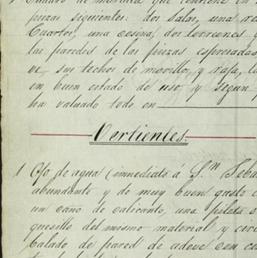 piezas siguientes: dos salas, una
Cuartos, una cocina, dos torreones y
las paredes de las piezas espresadas
ve, sus techos de morillo, y
en buen estado de uso, y segun
ha valuado todo en
Vertientes.
1 Ojo de agua (inmediato á Sn. Seba
abundante y de muy buen gusto
un caño de calicanto, una pileta
quesillo del mismo material y
balado de pared de adove con